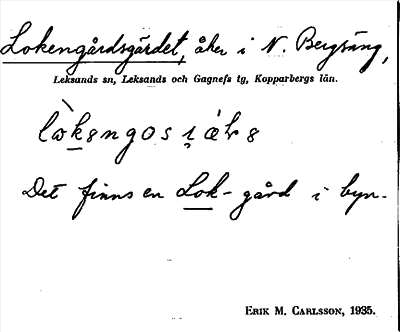 Lokengårdsgärdet, åker i N. Bergsäng,
Leksands sn, Leksands och Gagnefs tg, Kopparbergs län.
Det finns en Lok-gård i byn.
ERIK M. CARLSSON, 1935.